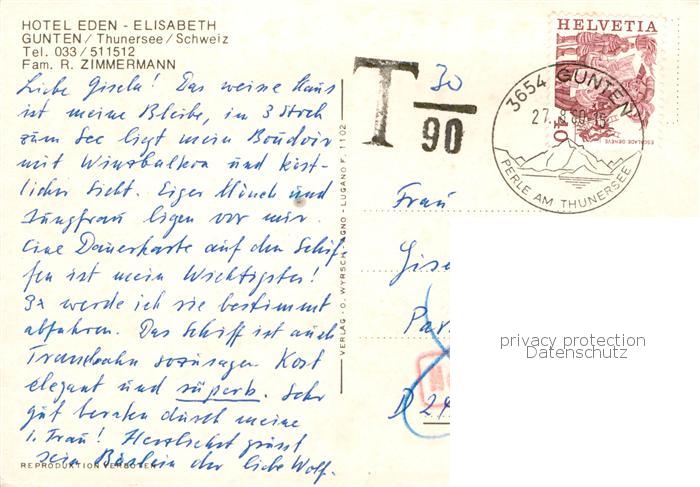 HOTEL EDEN - ELISABETH
GUNTEN / Thunersee / Schweiz
Tel. 033 / 511512
Fam. R. ZIMMERMANN
Liebe Gisela! Das weisse Haus
ist meine Bleibe, im 3 Stock
zum See liegt mein Boudoir
mit Winzbalkon und köst-
licher Sicht. Eiger Mönch und
Jungfrau liegen vor mir.
Eine Dauerkarte auf den Schif-
fen ist mein Wichtigstes!
3x werde ich sie bestimmt
abfahren. Das Schiff ist auch
Trambahn sozusagen. Kost
elegant und süperb. Sehr
gut beraten durch meine
1. Frau! Herzlichst grüsst
sein Bäslein der liebe Wolf.
REPRODUKTION VERBOTEN
VERLAG - O. WYRSCH, AGNO - LUGANO F. 1102
T 30
90
HELVETIA
40
ESCALADE GENEVE
3654 GUNTEN
27.8.80-15
PERLE AM THUNERSEE
Frau
Gise
Par
D 29
privacy protection
Datenschutz